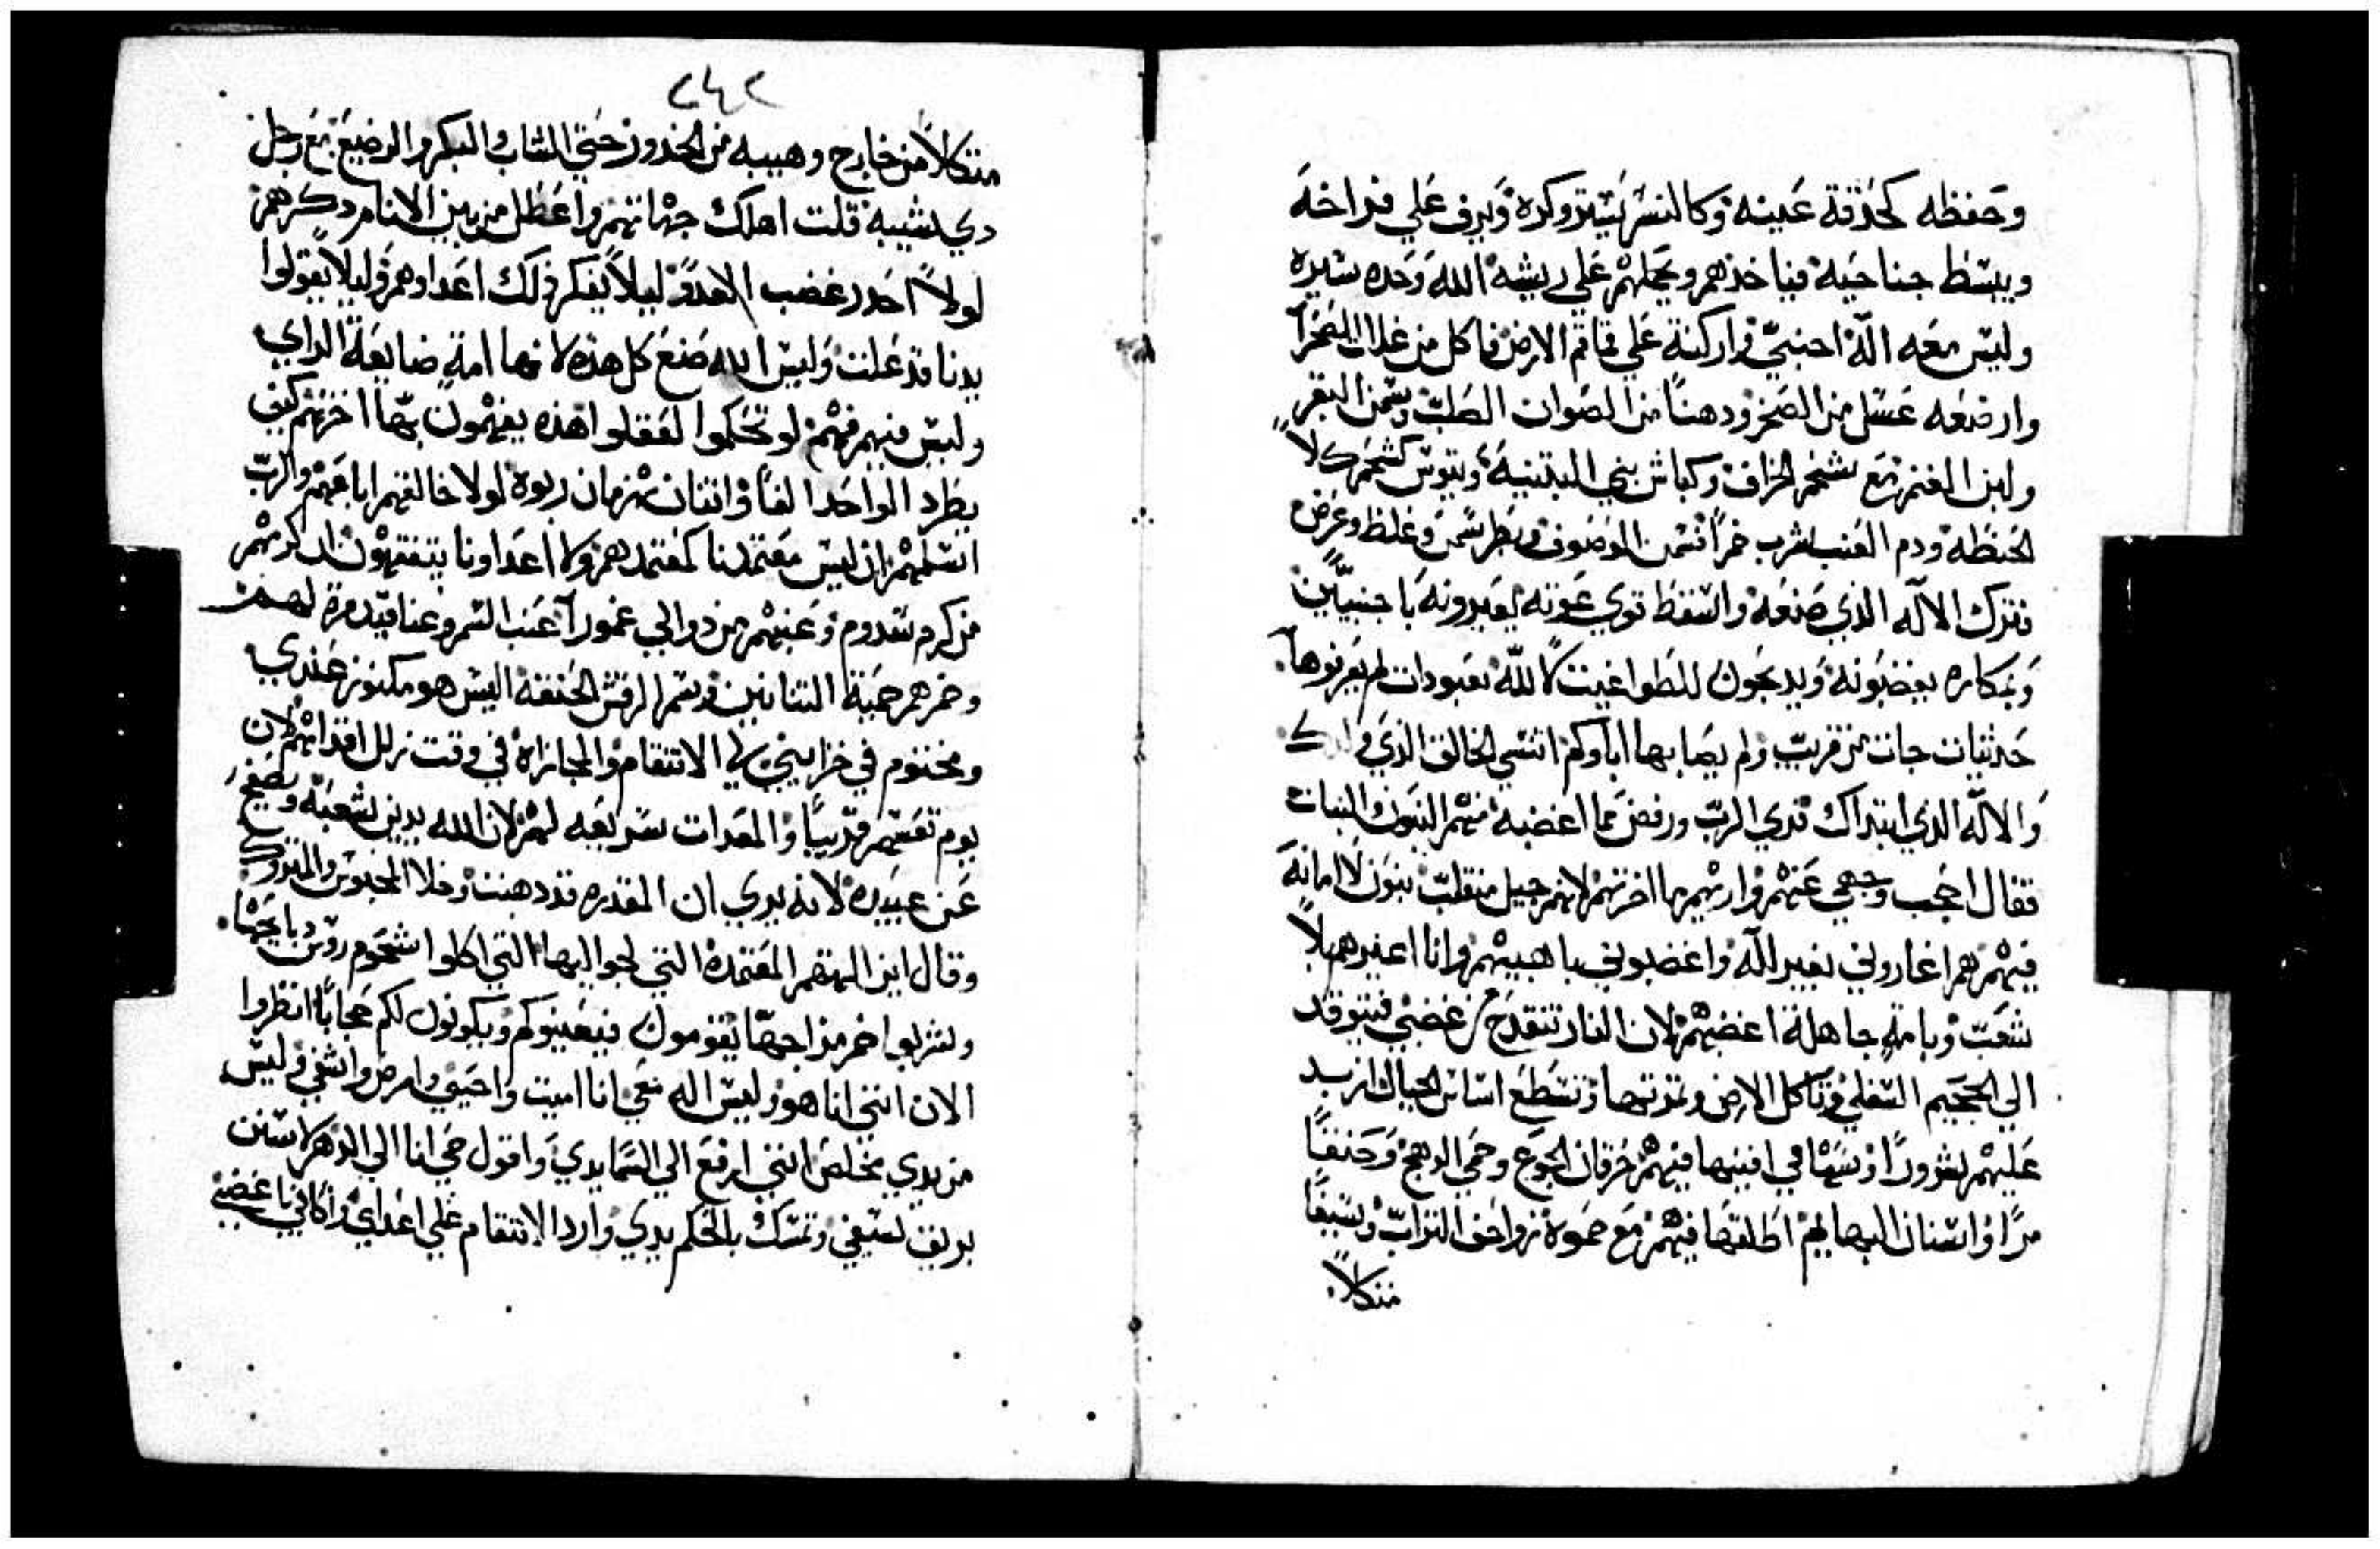 وحفظه كحدقة عينه وكالنسر يستر وكره ويرف على فراخه
ويبسط جناحيه فياخذهم ويحملهم علي ريشه الله وحده سيره
وليس معه اله اجنبي واركنه علي قماقم الارض فاكل من غلات الصحرآ
وارضعه عسل من الصخر ودهناً من الصوان الصلب وسمن البقر
ولبن الغنم مع شخم الخراف وكباش بني البتنيه وتيوس كشحم كلاً
الحنطه ودم العنب اشرب خمراً فسمن الموصوف وبطر سمن وغلظ وعرض
فترك الاله الذي صنعه واسقط قوي عونه يعيرونه باجنبيين
وبمكاره يغضبونه ويدبحون للطواغيت لا لله معبودات لم يعرفوها
حدثيات جات من قريب ولم يصابها اباوكم اتنسي الخالق الذي ولدك
والاله الذي ابتداك فدي الرب ورفض مما اغضبه منهم البنون والبنات
فقال احجب وجهي عنهم واريهم ما اخرتهم لانهم جيل منقلب بنون لا امانه
فيهم هم اغاروني بغير اله واغضبوني باهبيهم وانا اغيرهم بلا
شعب وبامة جاهلة اغضبهم لان النار تنقدح من غضبي فتتوقد
الي الجحيم السفلي وتاكل الارض وتمرتها وتسطع اساس الجبال ازيد
عليهم شروراً وسهامي افنيها فيهم حرقان الجوع وحمي الوهج وحنفاً
مراً واسنان البهايم اطلقها فيهم مع حموة زواحف التراب وسيفاً
متكلاً
٢٤٢
متكلاً من خارج وهيبه من الخدور حتي الشاب والبكر والرضيع مع رجل
دي شيبه قلت اهلك جهاتهم واعطل من بين الانام دكرهم
لولا احدر غضب العدو ليلا يفكر ذلك اعداوهم وليلا يقولوا
يدنا قد علت وليس الله صنع كل هذه لانها امة ضايعة الراي
وليس فيهم فهم لو تحكموا لعقلوا هذه يفهمون بما اخرتهم كيف
يطرد الواحد الفاً واثنان يهزمان ربوة لولا خالقهم اباعهم والرب
اسلمهم ان ليس معتمدنا كمعتمدهم ولا اعداونا يتفقهون ان كرمهم
من كرم سدوم وعنبهم من دوالي عمورا عنب السم وعناقيد مرة لهم
وخمرهم حمية التنانين وسم الرقش الحنفه اليس هو مكنوز عندي
ومختوم في خزايني لي الانتقام والمجازاة في وقت نزلل اقدامهم لان
يوم تعسهم قريباً والمعدات سريعه لهم لان الله يدين شعبه ويصفح
عن عبيده لانه يري ان المقدره قد دهبت وخلا المحبوس والمتروك
وقال اين الهتهم المعتمدة التي لجوا اليها التي اكلوا شحوم روس دبايحها
وشربوا خمر مزاجها يقومون فيعينوكم ويكونون لكم حجاباً انظروا
الان انني انا هو وليس اله معي انا اميت واحيي وامرض واشفي وليس
من يدي مخلص انني ارفع الي السما يدي واقول حي انا الي الدهر لاسنن
بريق سيفي وتمسك بالحكم يدي وارد الانتقام علي اعداي واكافي باغضي